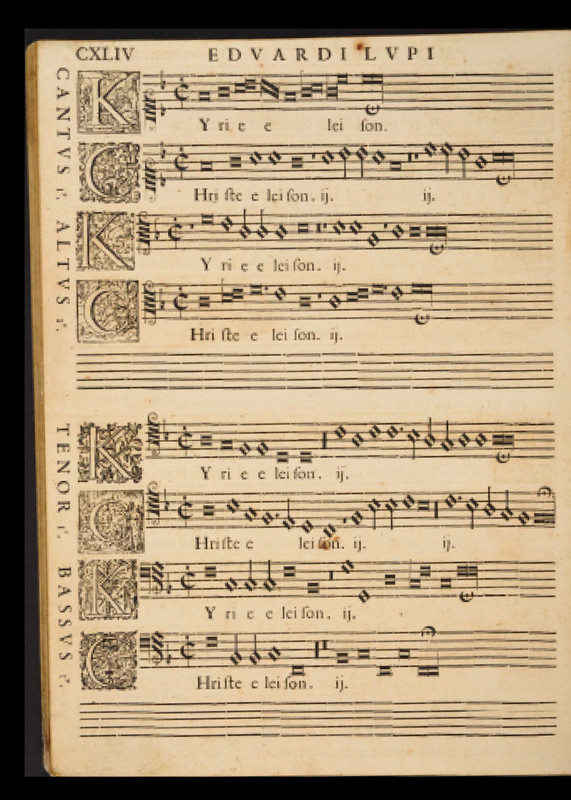 CXLIV EDVARDI LVPI
CANTVS 1.
K
Y ri e e lei son.
C
Hri ſte e lei ſon. ij. ij.
ALTVS 1.
K
Y ri e e lei ſon. ij.
C
Hri ſte e lei ſon. ij.
TENOR 1.
K
Y ri e e lei ſon. ij.
C
Hri ſte e lei ſon. ij. ij.
BASSVS 1.
K
Y ri e e lei ſon. ij.
C
Hri ſte e lei ſon. ij.